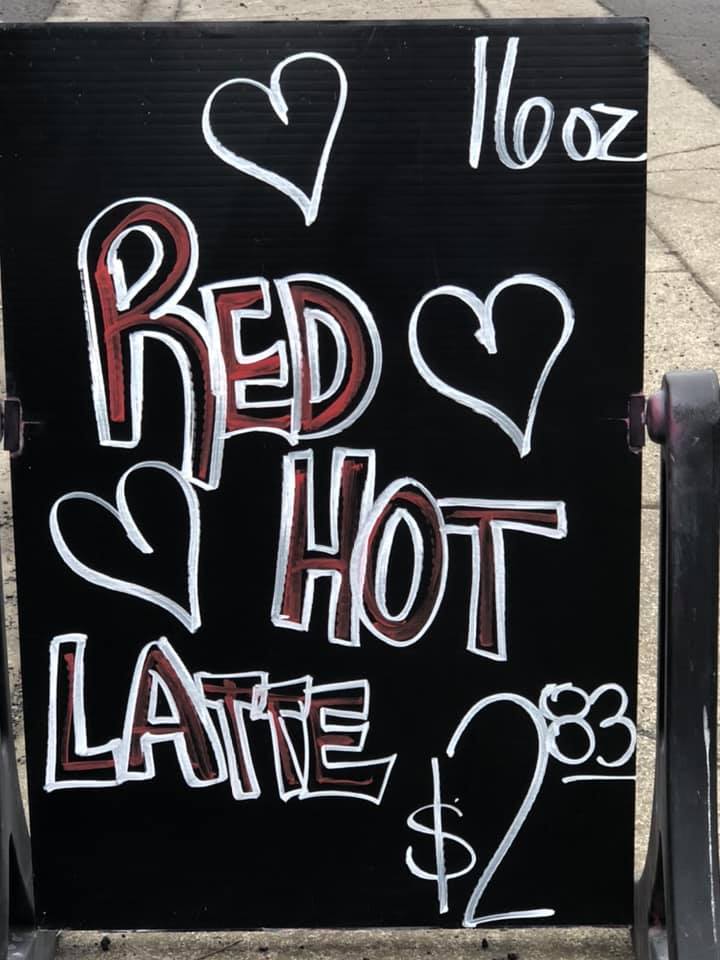 16 oz
RED
HOT
LATTE
$2 83